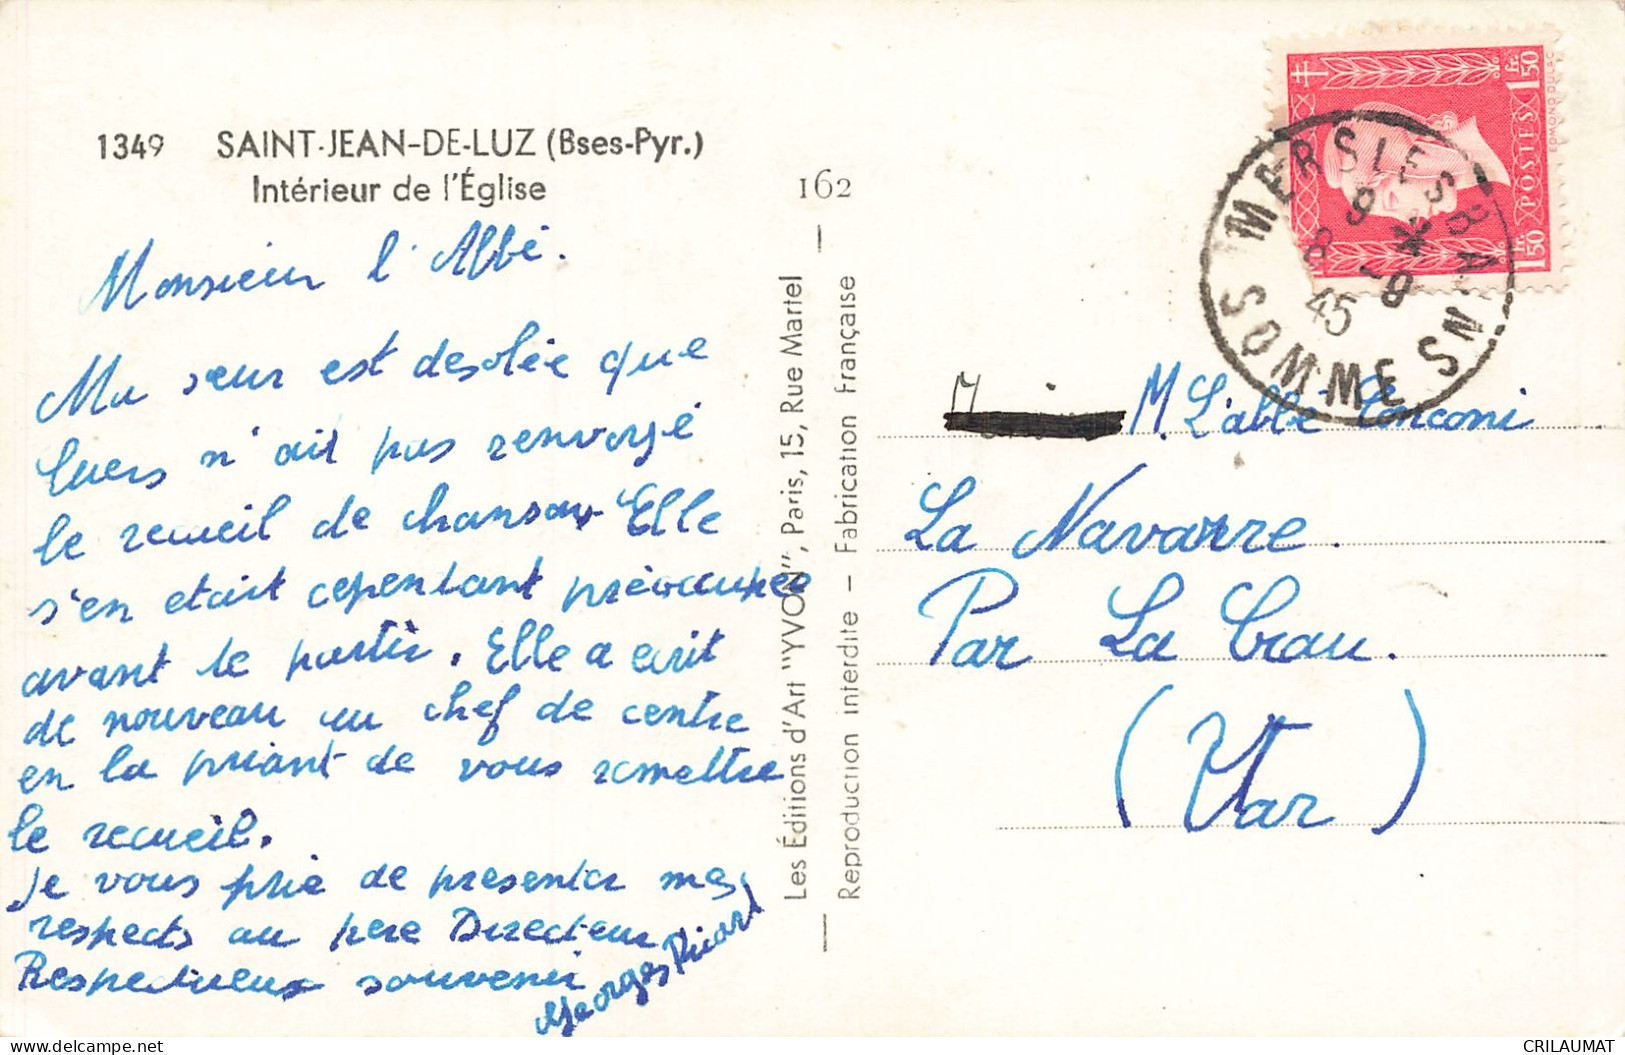 1349 SAINT-JEAN-DE-LUZ (Bses-Pyr.)
Intérieur de l'Église
Monsieur l'Abbé.
Ma sœur est desolée que
n'ait pas renvoyé
le recueil de chansons Elle
s'en etait cependant préoccupée
avant de partir. Elle a ecrit
de nouveau au chef de centre
en la priant de vous remettre
le recueil.
Je vous prie de presenter mes
respects au pere Directeur
Respectueux souvenir
Georges Ricard
162
Les Éditions d'Art "YVON", Paris, 15, Rue Martel
Reproduction interdite - Fabrication Française
1 fr. 50 POSTES 1 fr. 50
EDMOND DULAC
MERS LES BAINS
9 *
8 -9
45
SOMME
M. L'abbé Conconi
La Navarre.
Par La Crau.
(Var)
CRILAUMAT